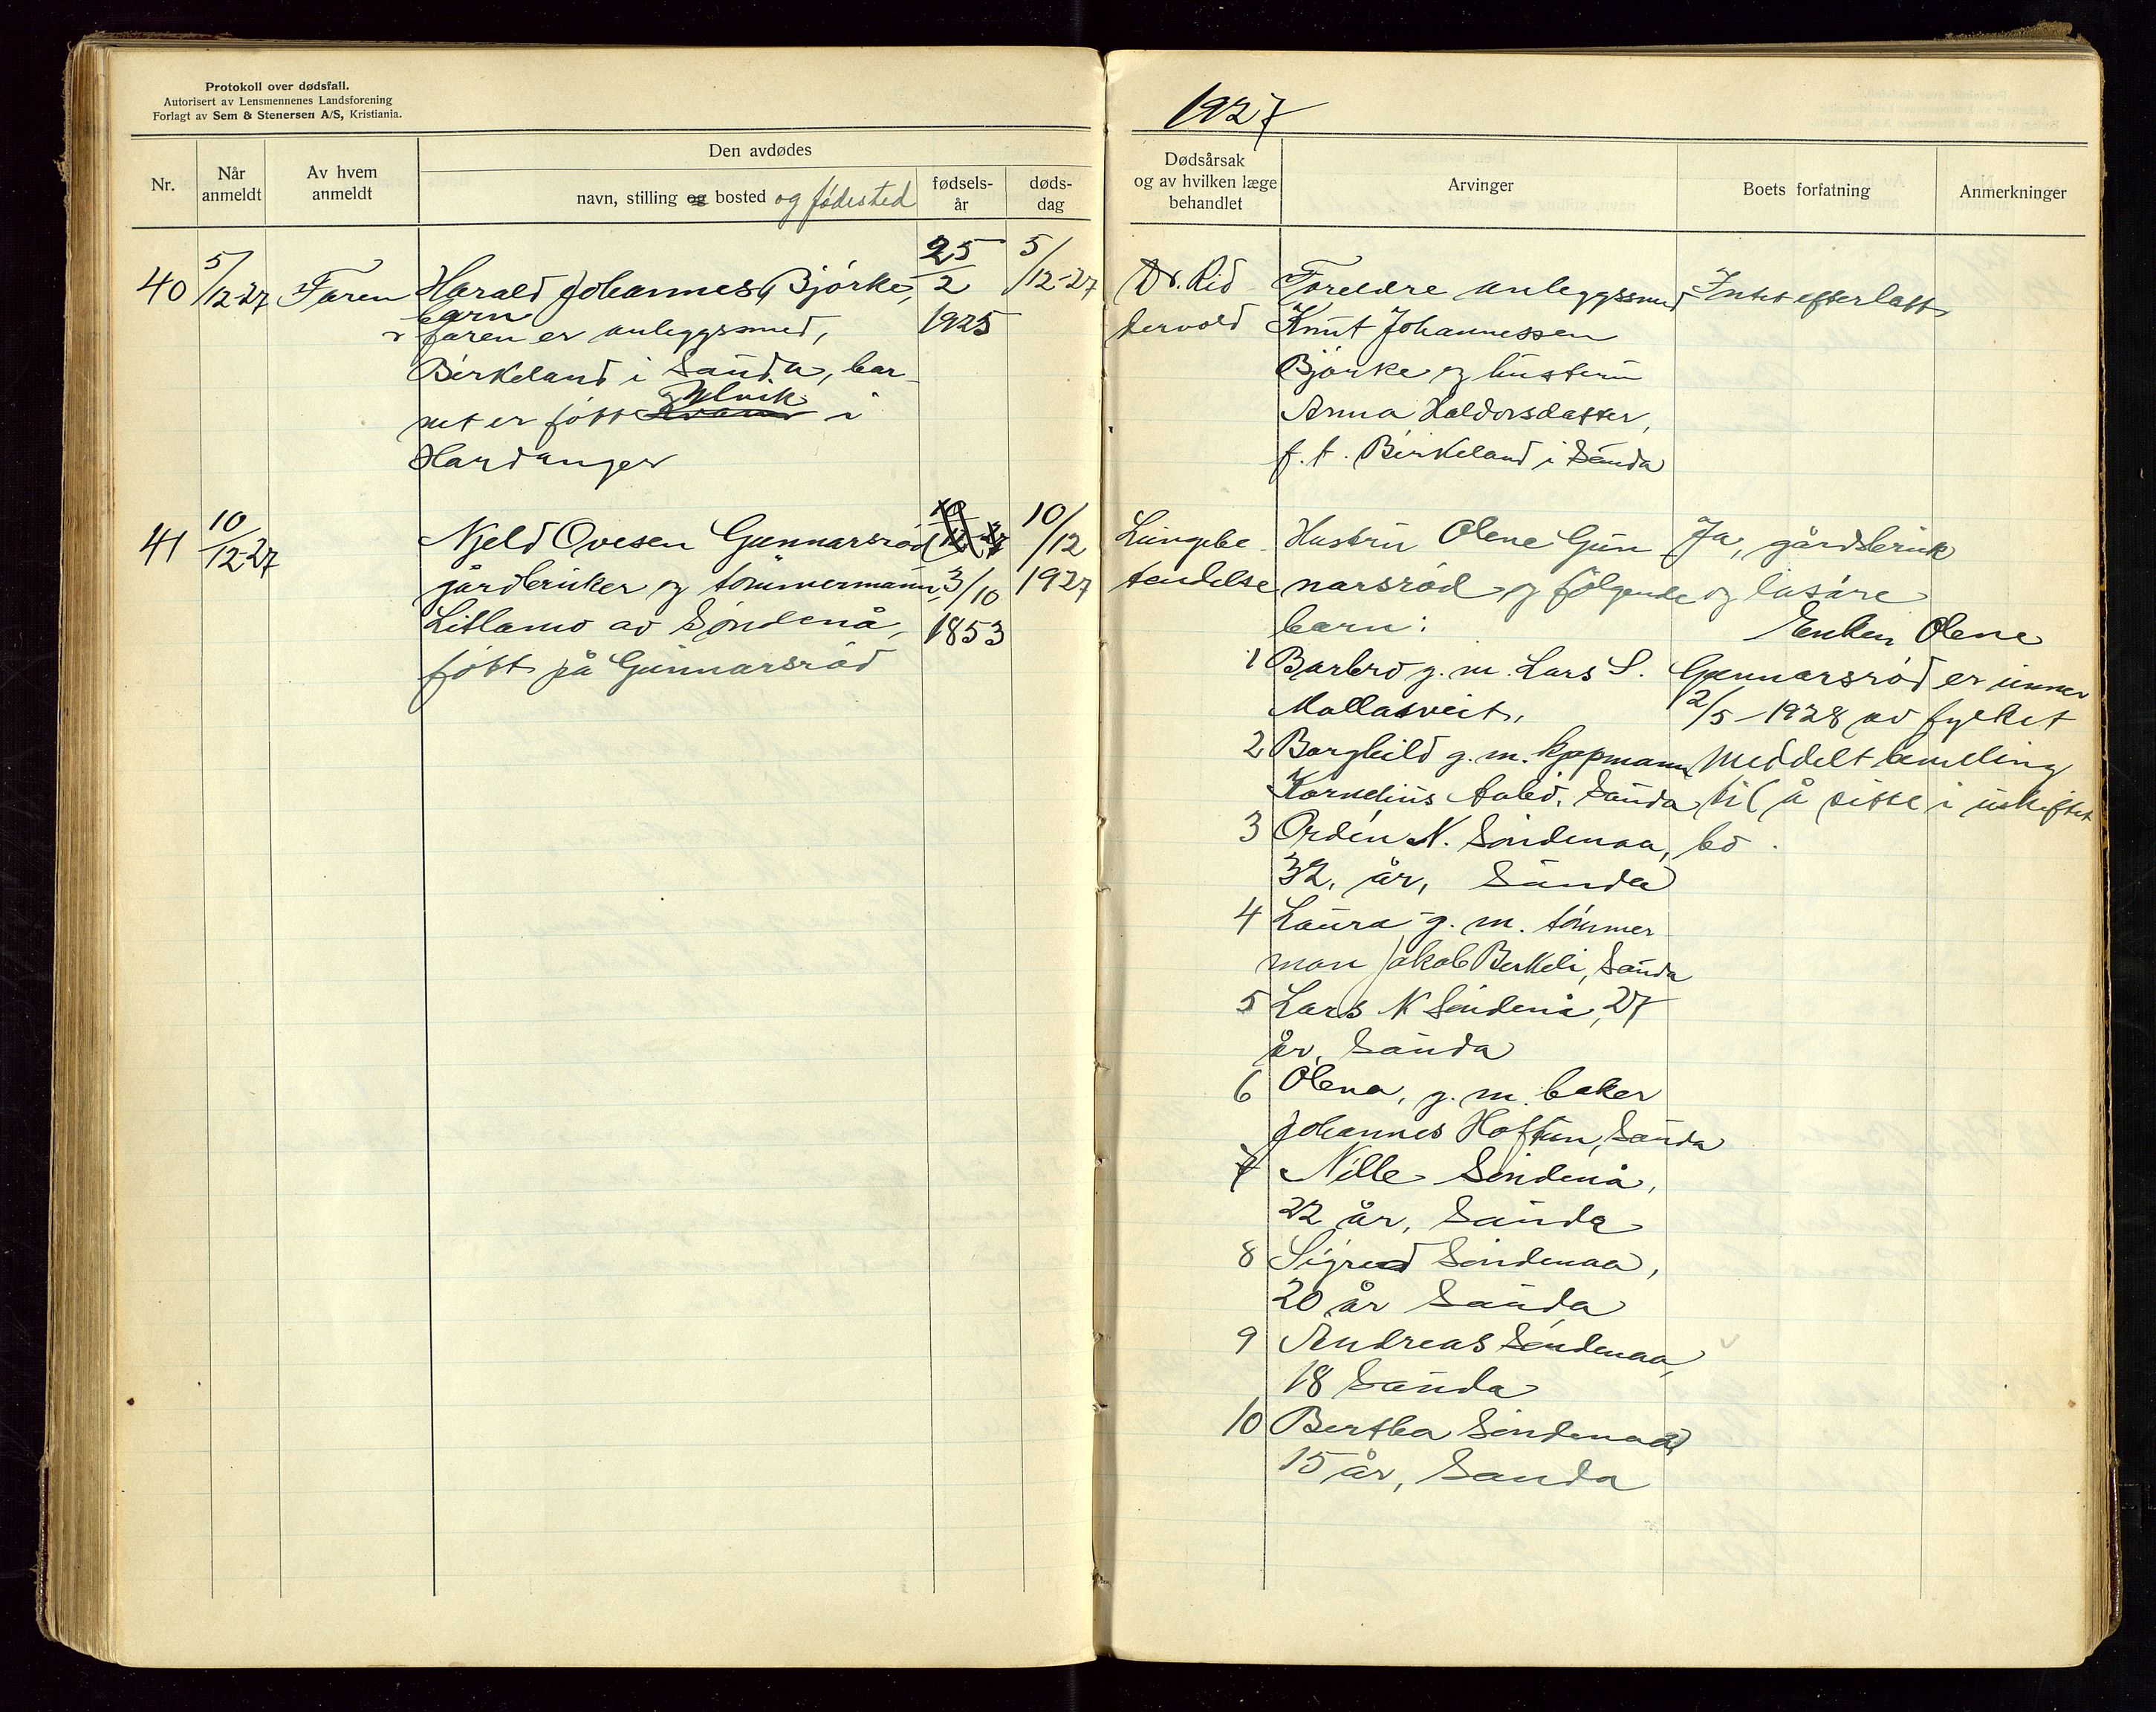 Protokoll over dødsfall.
Autorisert av Lensmennenes Landsforening
Forlagt av Sem & Stenersen A/S, Kristiania.
Nr.
Når anmeldt
Av hvem anmeldt
Den avdødes
navn, stilling og bosted og fødested
fødsels-år
døds-dag
40
5/12-27
Faren
Harald Johannes Bjørke,
barn
faren er anleggssmed,
Birkeland i Sauda, bar-
Ulvik
net er født i
Hardanger
25/2
1925
5/12-27
41
10/12-27
Njeld Ovesen Gunnarsrød
gårdbruker og tømmermann,
Litlamo av Søndenå,
født på Gunnarsrød
3/10
1853
10/12
1927
1927
Dødsårsak
og av hvilken læge
behandlet
Arvinger
Boets forfatning
Anmerkninger
Dr. Rid
dervold
Foreldre anleggssmed
Knut Johannessen
Bjørke og hustru
Anna Haldorsdatter,
f. t. Birkeland i Sauda
Intet efterlatt
Lungebe-
tendelse
Hustru Olene Gun
narsrød og følgende
barn:
1 Barbro g. m. Lars S.
Mallasveit,
2 Borghild g. m. kjøpmann
Kornelius Aabø, Sauda
3 Ordin N. Søndenaa,
32. år, Sauda
4 Laura g. m. tømmer
man Jakob Berkeli, Sauda
5 Lars N Søndenå, 27
år, Sauda
6 Olena, g. m. baker
Johannes Hoftun, Sauda
7 Nille Søndenå,
22 år, Sauda
8 Sigrid Søndenaa,
20 år Sauda
9 Andreas Søndenaa,
18 Sauda
10 Bertha Søndenaa
15 år, Sauda
Ja, gårdsbruk
og løsøre
Enken Olene
Gunnarsrød er unner
2/5-1928 av fylket
meddelt
til å sitte i uskiftet
bo.